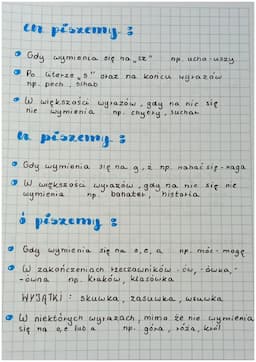 ch piszemy :
Gdy wymienia się na „sz" np. ucha-uszy
Po literze „s" oraz na końcu wyrazów
np. pech, schab
W większości wyrazów, gdy na nic się
nie wymienia np. chytry, suchar
h piszemy :
Gdy wymienia się na g, z np. wahać się-waga
W większości wyrazów, gdy na nic się nie
wymienia np. bohater, historia
ó piszemy :
Gdy wymienia się na o, e, a np. móc-mogę
W zakończeniach rzeczowników -ów, -ówka, -
-ówna np. Kraków, klasówka
WYJĄTKI : skuwka, zasuwka, wsuwka
W niektórych wyrazach, mimo że nie wymienia
się na o, e lub a np. góra, róża, król